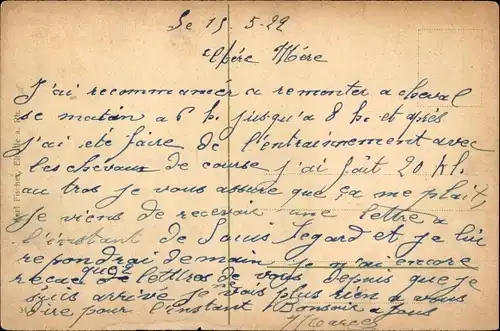 Le 15.5-22
Chére Mére
J'ai recommancér a remonter a cheval
se matin a 6 h. jusqu'a 8 h. et après
j'ai été faire de l'entrainnement avec
les chevaux de course j'ai fait 20 Kl.
au tros je vous assure que ça me plait,
je viens de recevoir une lettre a
l'instant de Louis Legard et je lui
repondrai demain je n'ai encore
recue que 2 lettres de vous depuis que je
suis arrivé je vois plus rien a vous
dire pour l'instant Bonsoir a tous
Marcel
Fischer,